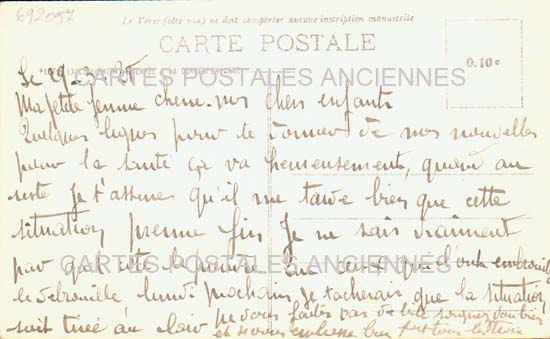 692097
Le Verso (côté vue) ne doit comporter aucune inscription manuscrite
CARTE POSTALE
0.10 c
CARTES POSTALES ANCIENNES
Le 29-3-25
Ma petite femme chérie nos chers enfants
Quelques lignes pour te donner de nos nouvelles
pour la santé ça va heureusement, quand au
reste je t'assure qu'il me tarde bien que cette
situation prenne fin je ne sais vraiment
par quel
CARTES POSTALES ANCIENNES
le débrouille lundi prochain je tacherais que la situation
soit tirée au clair ne vous faites pas de bile soignez vous bien
et je vous embrasse bien fort tous les trois